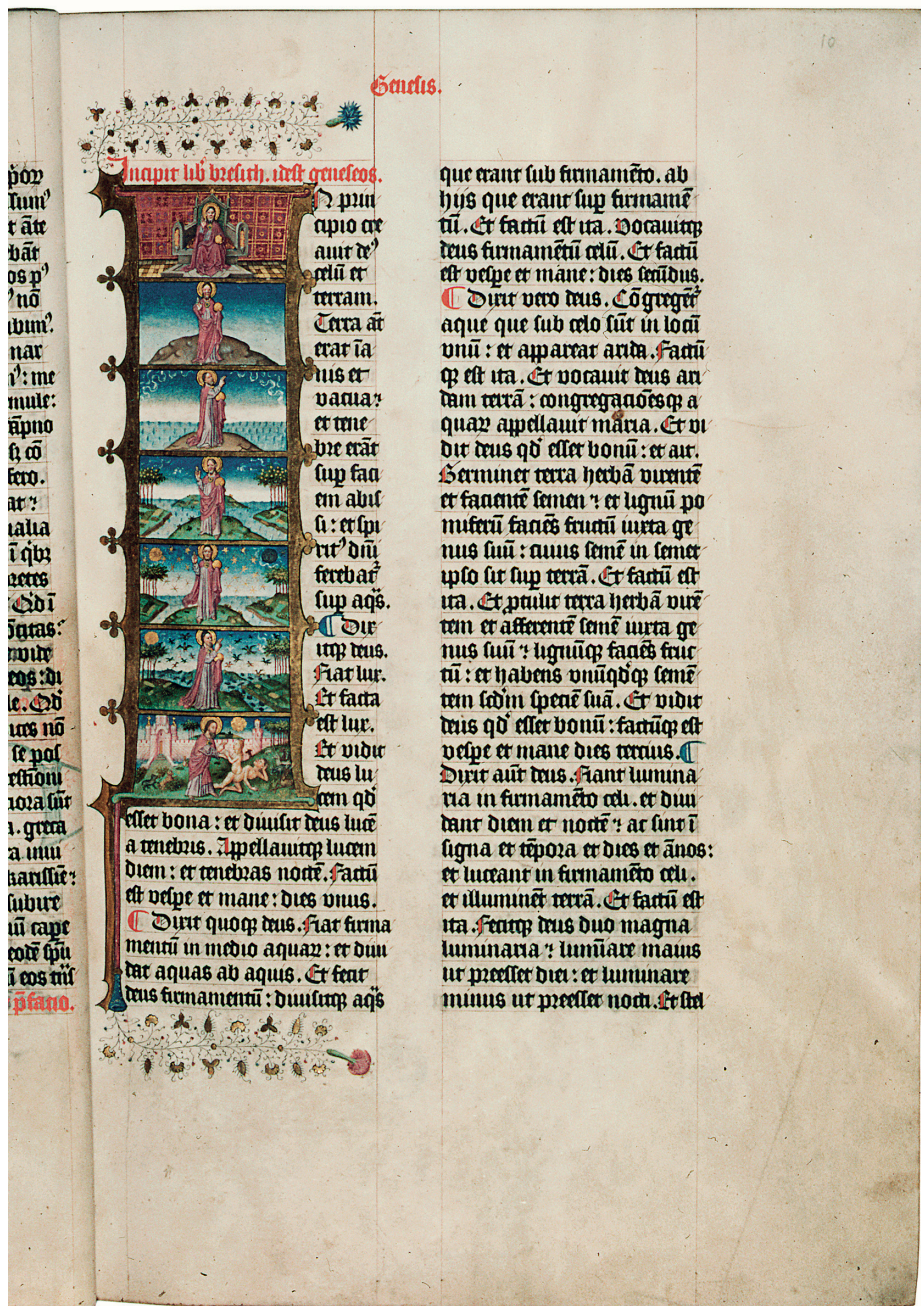 10
Genesis.
Incipit lib̄ bresith. idest geneseos.
N prin
cipio cre
auit de᾿
celū et
terram.
Terra āt
erat īa
nis et
vacua ⁊
et tene
bre erāt
sup faci
em abis
si : et spi
rit᾿ dn̄i
ferebat᷑
sup aq̄s.
Dix
itqꝫ deus.
Fiat lux.
Et facta
est lux.
Et vidit
deus lu
cem qd̄
esset bona : et diuisit deus lucē
a tenebris. Appellauitqꝫ lucem
diem : et tenebras noctē. Factū
est vespe et mane : dies vnus.
Dixit quoqꝫ deus. Fiat firma
mentū in medio aquaꝝ : et diui
dat aquas ab aquis. Et fecit
deus firmamentū : diuisitqꝫ aq̄s
que erant sub firmamēto. ab
hijs que erant sup firmamē
tū. Et factū est ita. Vocauitqꝫ
deus firmamētū celū. Et factū
est vespe et mane : dies secūdus.
Dixit vero deus. Cōgregēt᷑
aque que sub celo sūt in locū
vnū : et appareat arida. Factū
qꝫ est ita. Et vocauit deus ari
dam terrā : congregacōesqꝫ a
quaꝝ appellauit maria. Et vi
dit deus qd̄ esset bonū : et ait.
Germinet terra herbā virentē
et facientē semen ⁊ et lignū po
miferū faciēs fructū iuxta ge
nus suū : cuius semē in semet
ipso sit sup terrā. Et factū est
ita. Et ꝓtulit terra herbā virē
tem et afferentē semē iuxta ge
nus suū ⁊ lignūqꝫ faciēs fruc
tū : et habens vnūqd̄qꝫ semē
tem scd̄m speciē suā. Et vidit
deus qd̄ esset bonū : factūqꝫ est
vespe et mane dies tercius.
Dixit aūt deus. Fiant lumina
ria in firmamēto celi. et diui
dant diem et noctē ⁊ ac sint ī
signa et tēpora et dies et ānos :
et luceant in firmamēto celi.
et illuminēt terrā. Et factū est
ita. Fecitqꝫ deus duo magna
luminaria ⁊ lumīare maius
ut preesset diei : et luminare
minus ut preesset nocti. Et stel